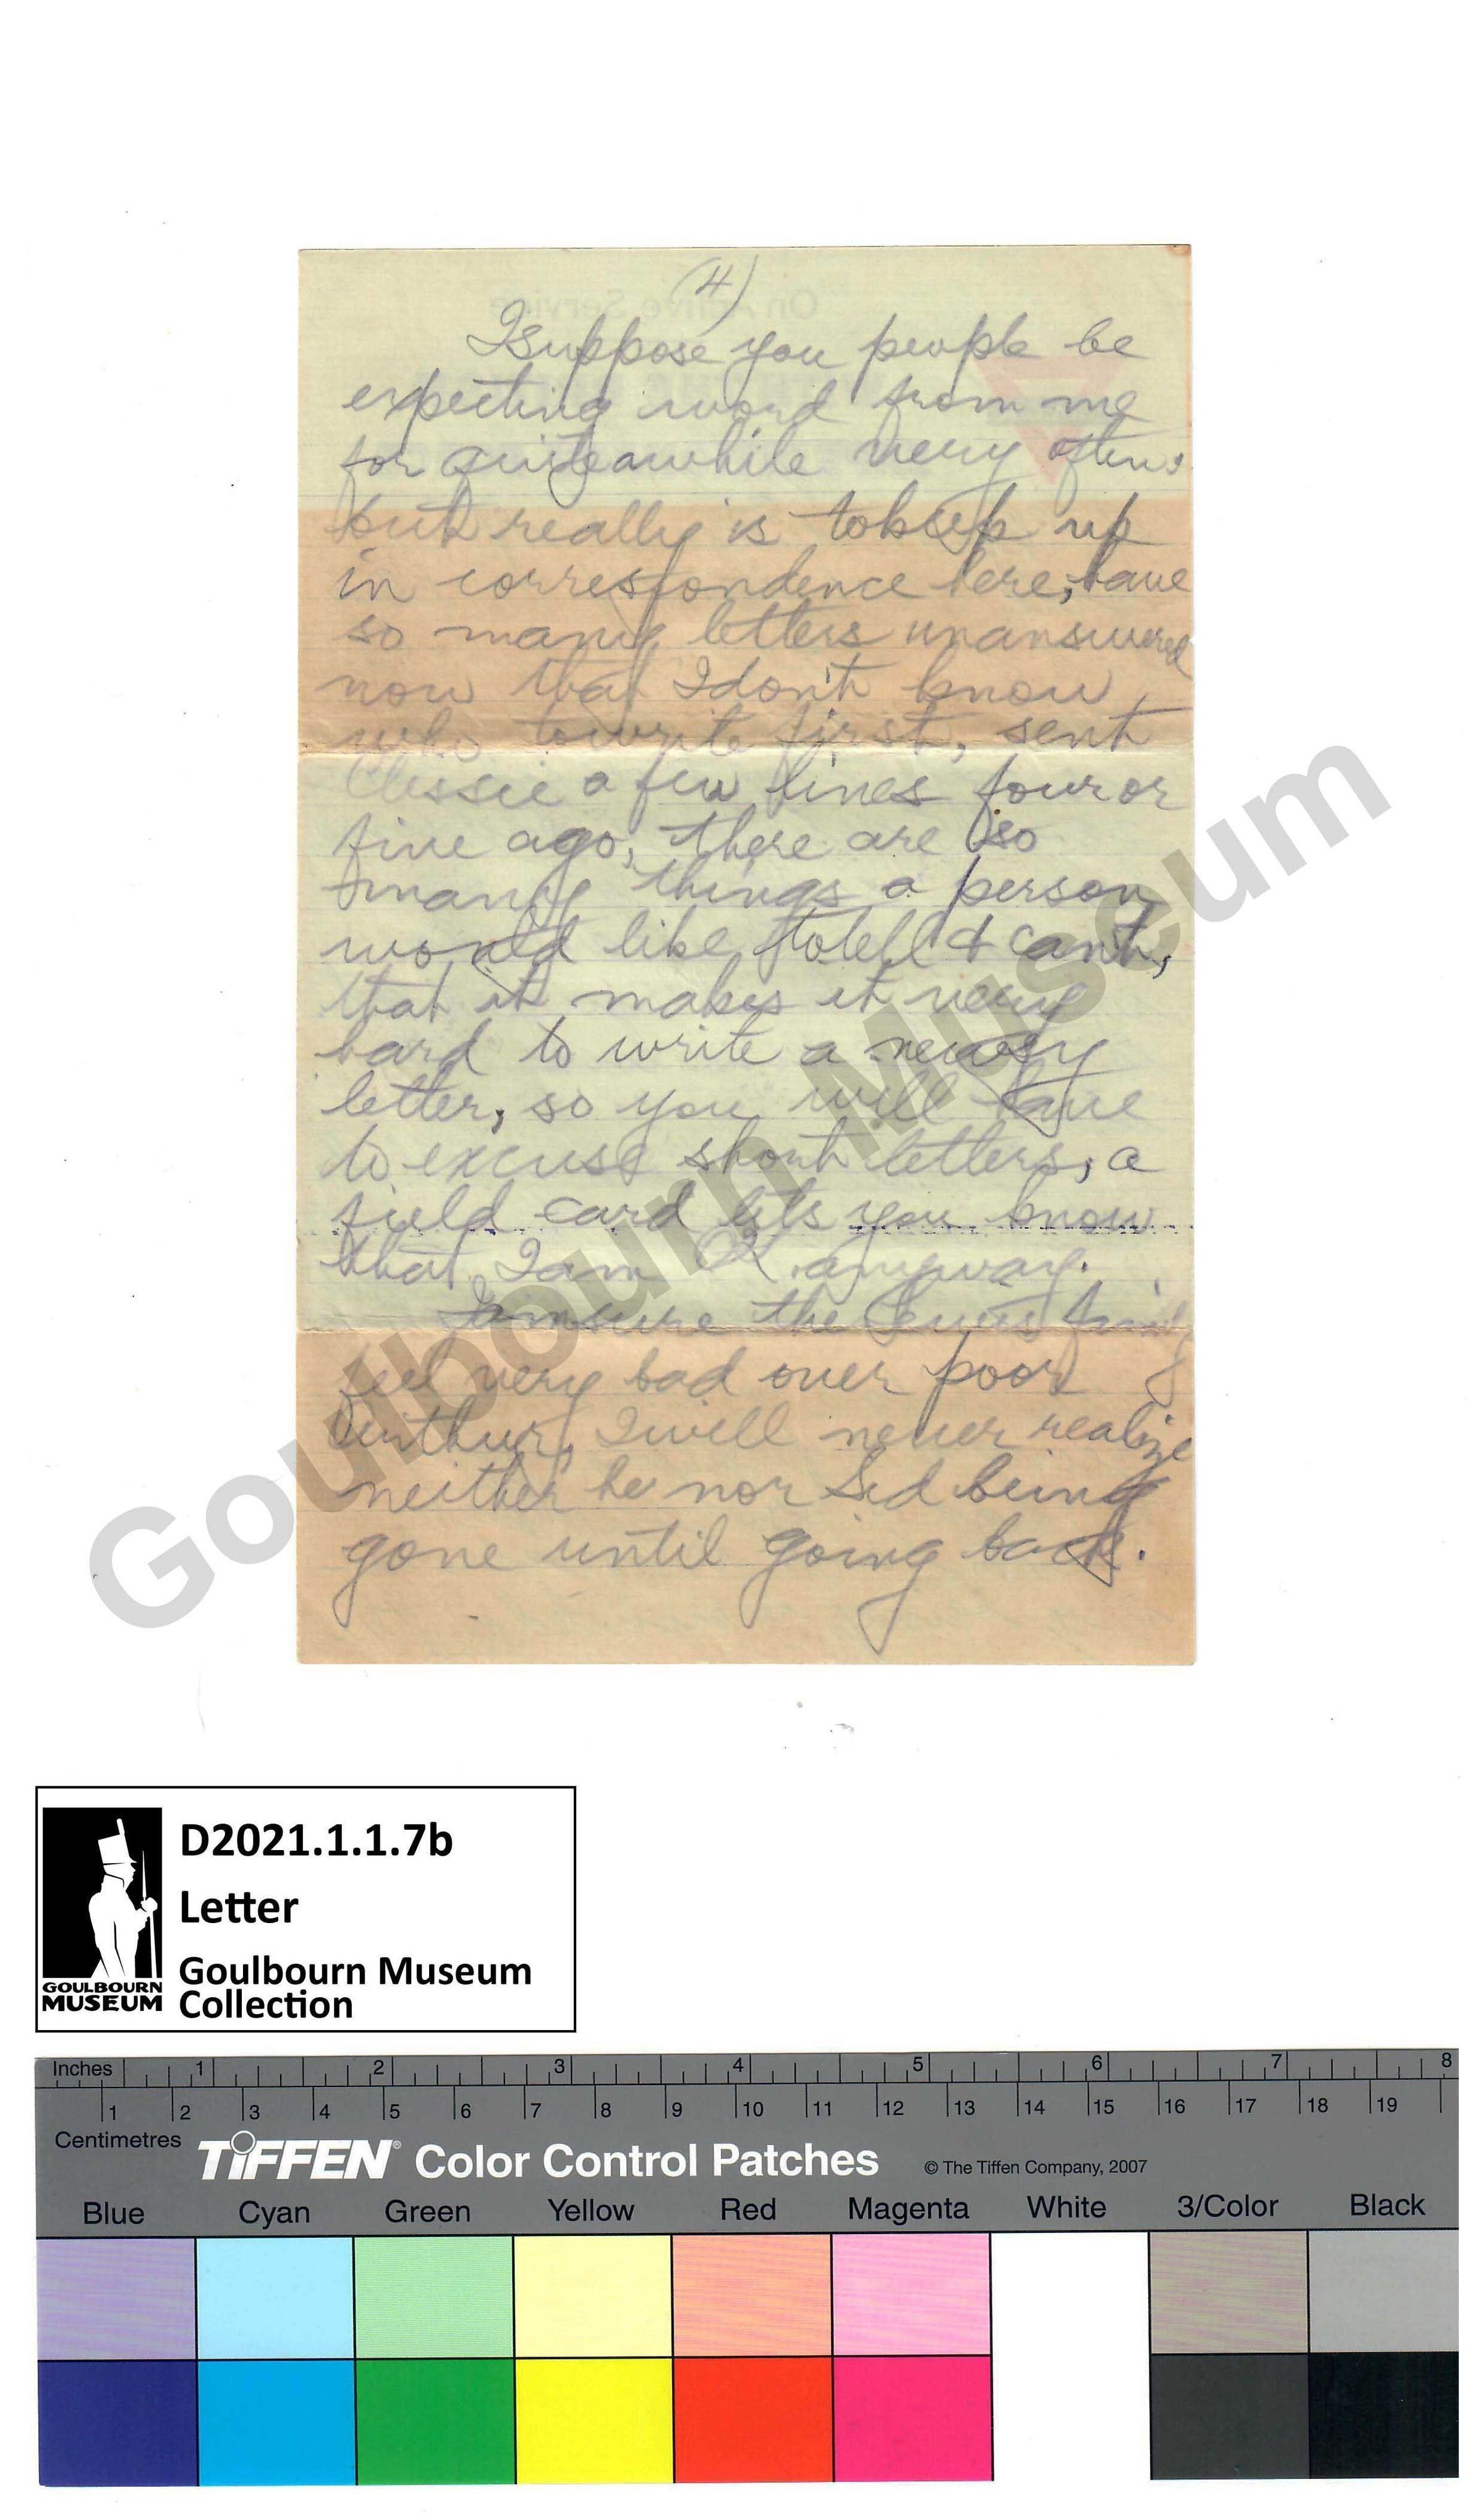 (4)
I suppose you people be
expecting word from me
for quite awhile very often,
but really is to keep up
in correspondence here, have
so many letters unanswered
now that I don't know
who to write first, sent
a few lines four or
five ago, there are so
many things a person
would like to tell & can't,
that it makes it very
hard to write a newsy
letter, so you will have
to excuse short letters, a
field card lets you know
that I am OK anyway.
I am sure the Lewis
feel very bad over poor
Arthur, I will never realize
neither he nor Sid being
gone until going back.
Goulbourn Museum
D2021.1.1.7b
Letter
Goulbourn Museum
Collection
GOULBOURN
MUSEUM
Inches 1 2 3 4 5 6 7 8
1 2 3 4 5 6 7 8 9 10 11 12 13 14 15 16 17 18 19
Centimetres
TIFFEN® Color Control Patches © The Tiffen Company, 2007
Blue Cyan Green Yellow Red Magenta White 3/Color Black